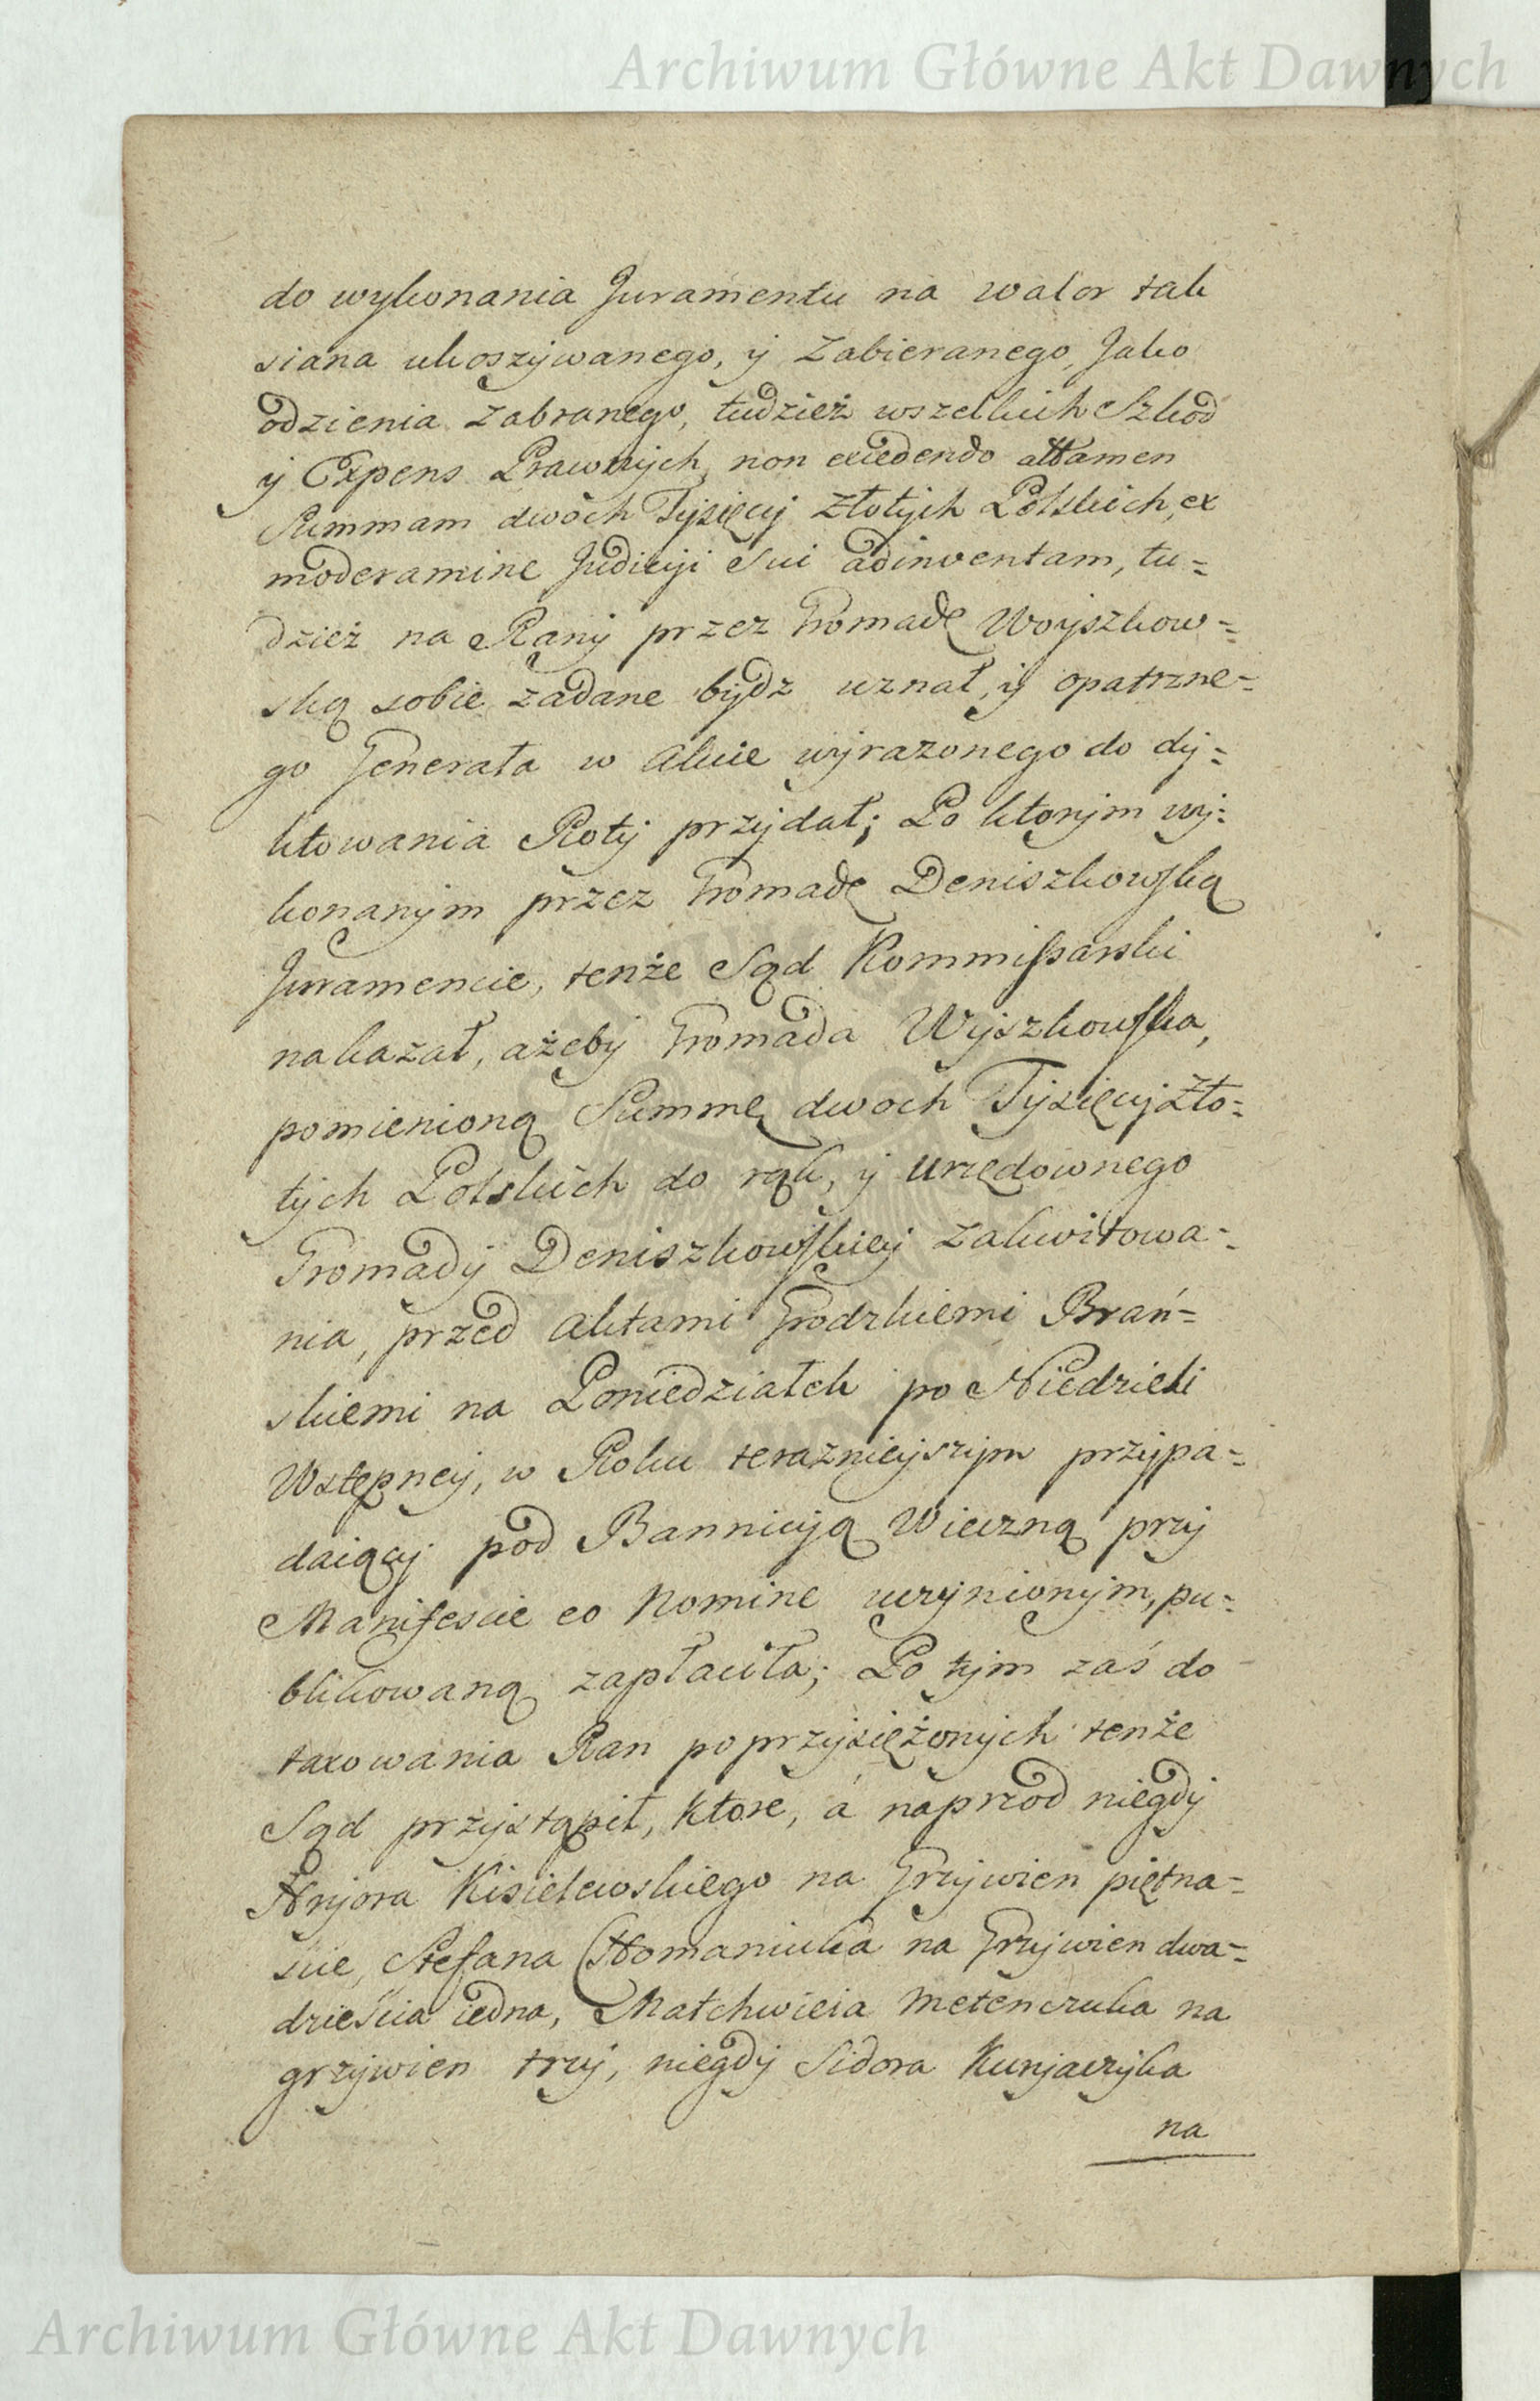 Archiwum Główne Akt Dawnych
do wykonania Juramentu na walor tak
siana ukoszywanego, y zabieranego, Jako
odzienia zabranego, tudzież wszelkich Szkod
y Expens Prawnych, non excedendo attamen
Summam dwóch Tysięcy złotych Polskich, ex
moderamine Judicyi Sui adinventam, tu=
dzież na Rany przez Gromadę Woyszkow=
ską sobie zadane bydz uznał, y opatrzne=
go Generała w Akcie wyrazonego do dy=
ktowania Roty przydał; Po ktorym wy=
konanym przez Gromadę Deniszkowską
Juramencie, tenże Sąd Kommissarski
nakazał, ażeby Gromada Wyszkowska,
pomienioną Summę dwoch Tysięcy Zło=
tych Polskich do rąk, y urzędownego
Gromady Deniszkowskiey zakwitowa=
nia, przed Aktami Grodzkiemi Brań=
skiemi na Poniedziałek po Niedzieli
Wstępney, w Roku teraznieyszym przypa=
daiący pod Bannicyą Wieczną przy
Manifescie eo Nomine uczynionym, pu=
blikowaną zapłaciła; Po tym zaś do
taxowania Ran poprzysiężonych tenże
Sąd przystąpił, ktore, á naprzod niegdy
Hryora Kisielewskiego na Grzywien piętna=
scie, Stefana Homaniuka na Grzywien dwa=
dzieścia iedna, Matchwieia Metenczuka na
grzywien trzy, niegdy Sidora Kunjaczyka
na
Archiwum Główne Akt Dawnych